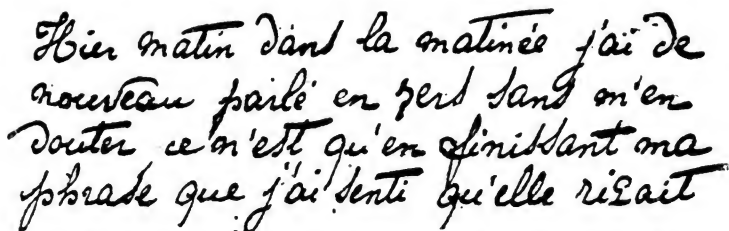 Hier matin dans la matinée j'ai de
nouveau parlé en vers sans m'en
douter, ce n'est qu'en finissant ma
phrase que j'ai senti qu'elle rimait